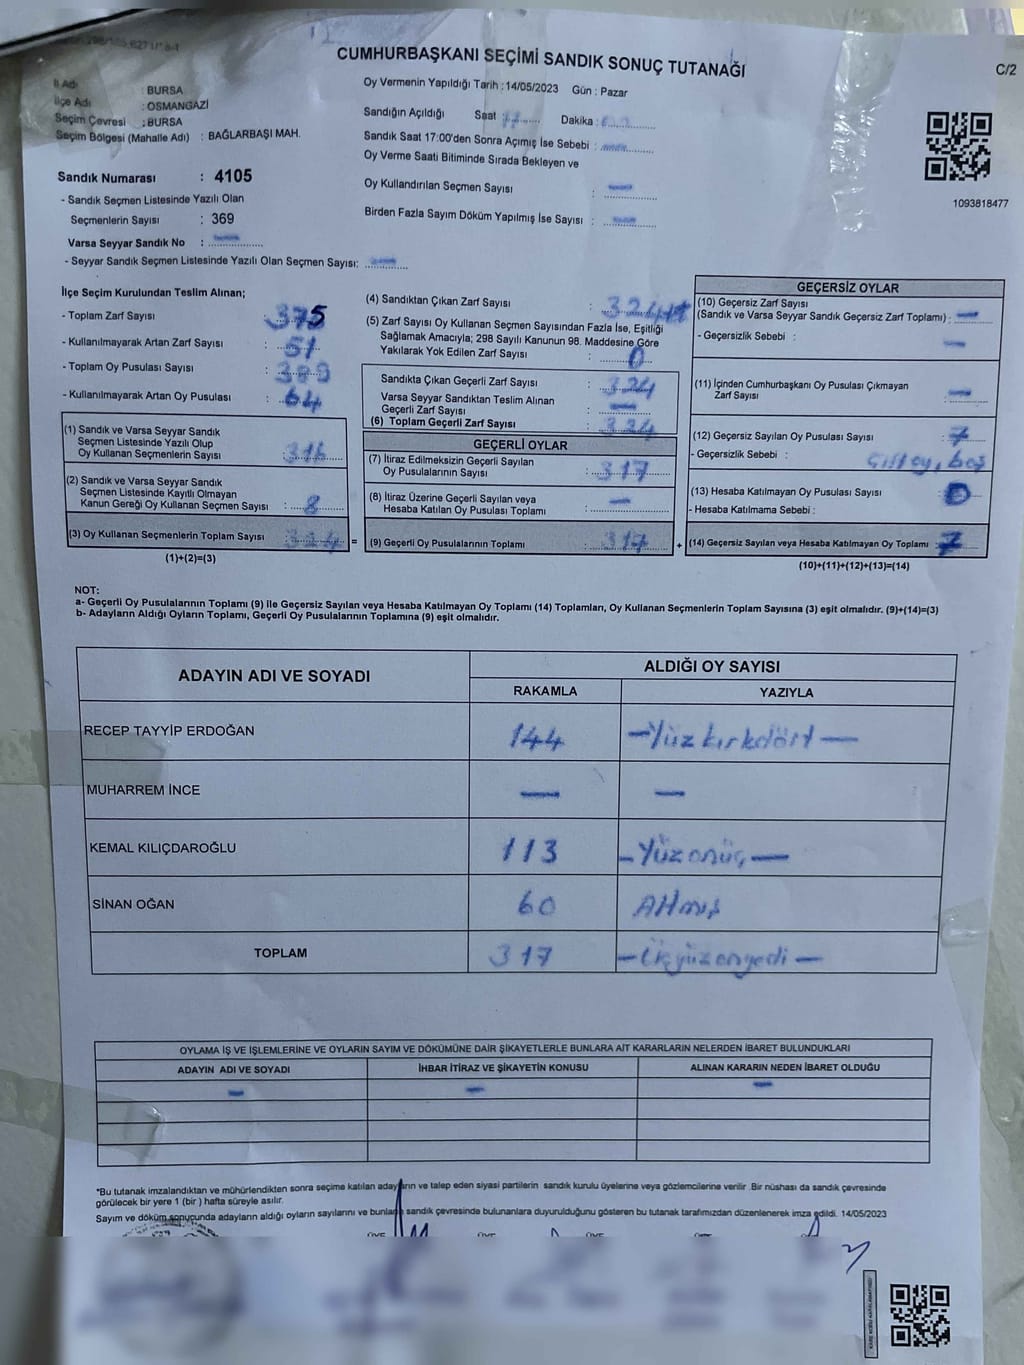 CUMHURBAŞKANI SEÇİMİ SANDIK SONUÇ TUTANAĞI
C/2
İl Adı : BURSA
İlçe Adı : OSMANGAZİ
Seçim Çevresi : BURSA
Seçim Bölgesi (Mahalle Adı) : BAĞLARBAŞI MAH.
Sandık Numarası : 4105
- Sandık Seçmen Listesinde Yazılı Olan
Seçmenlerin Sayısı : 369
Varsa Seyyar Sandık No :
- Seyyar Sandık Seçmen Listesinde Yazılı Olan Seçmen Sayısı:
Oy Vermenin Yapıldığı Tarih : 14/05/2023 Gün : Pazar
Sandığın Açıldığı Saat : Dakika :
Sandık Saat 17:00'den Sonra Açımış İse Sebebi :
Oy Verme Saati Bitiminde Sırada Bekleyen ve
Oy Kullandırılan Seçmen Sayısı :
Birden Fazla Sayım Döküm Yapılmış İse Sayısı :
1093818477
İlçe Seçim Kurulundan Teslim Alınan;
- Toplam Zarf Sayısı : 375
- Kullanılmayarak Artan Zarf Sayısı : 51
- Toplam Oy Pusulası Sayısı :
- Kullanılmayarak Artan Oy Pusulası : 64
(1) Sandık ve Varsa Seyyar Sandık
Seçmen Listesinde Yazılı Olup
Oy Kullanan Seçmenlerin Sayısı : 316
(2) Sandık ve Varsa Seyyar Sandık
Seçmen Listesinde Kayıtlı Olmayan
Kanun Gereği Oy Kullanan Seçmen Sayısı : 8
(3) Oy Kullanan Seçmenlerin Toplam Sayısı : 324 =
(1)+(2)=(3)
(4) Sandıktan Çıkan Zarf Sayısı : 324
(5) Zarf Sayısı Oy Kullanan Seçmen Sayısından Fazla İse, Eşitliği
Sağlamak Amacıyla; 298 Sayılı Kanunun 98. Maddesine Göre
Yakılarak Yok Edilen Zarf Sayısı : 0
Sandıkta Çıkan Geçerli Zarf Sayısı : 324
Varsa Seyyar Sandıktan Teslim Alınan
Geçerli Zarf Sayısı : —
(6) Toplam Geçerli Zarf Sayısı : 324
GEÇERLİ OYLAR
(7) İtiraz Edilmeksizin Geçerli Sayılan
Oy Pusulalarının Sayısı : 317
(8) İtiraz Üzerine Geçerli Sayılan veya
Hesaba Katılan Oy Pusulası Toplamı : —
(9) Geçerli Oy Pusulalarının Toplamı : 317 +
GEÇERSİZ OYLAR
(10) Geçersiz Zarf Sayısı
(Sandık ve Varsa Seyyar Sandık Geçersiz Zarf Toplamı) : —
- Geçersizlik Sebebi : —
(11) İçinden Cumhurbaşkanı Oy Pusulası Çıkmayan
Zarf Sayısı : —
(12) Geçersiz Sayılan Oy Pusulası Sayısı : 7
- Geçersizlik Sebebi : Çift oy, boş
(13) Hesaba Katılmayan Oy Pusulası Sayısı : 0
- Hesaba Katılmama Sebebi :
(14) Geçersiz Sayılan veya Hesaba Katılmayan Oy Toplamı : 7
(10)+(11)+(12)+(13)=(14)
NOT:
a- Geçerli Oy Pusulalarının Toplamı (9) ile Geçersiz Sayılan veya Hesaba Katılmayan Oy Toplamı (14) Toplamları, Oy Kullanan Seçmenlerin Toplam Sayısına (3) eşit olmalıdır. (9)+(14)=(3)
b- Adayların Aldığı Oyların Toplamı, Geçerli Oy Pusulalarının Toplamına (9) eşit olmalıdır.
ADAYIN ADI VE SOYADI ALDIĞI OY SAYISI
RAKAMLA YAZIYLA
RECEP TAYYİP ERDOĞAN 144 — Yüz kırkdört —
MUHARREM İNCE — —
KEMAL KILIÇDAROĞLU 113 — Yüz onüç —
SİNAN OĞAN 60 Altmış
TOPLAM 317 — Üçyüz onyedi —
OYLAMA İŞ VE İŞLEMLERİNE VE OYLARIN SAYIM VE DÖKÜMÜNE DAİR ŞİKAYETLERLE BUNLARA AİT KARARLARIN NELERDEN İBARET BULUNDUKLARI
ADAYIN ADI VE SOYADI İHBAR İTİRAZ VE ŞİKAYETİN KONUSU ALINAN KARARIN NEDEN İBARET OLDUĞU
— — —
*Bu tutanak imzalandıktan ve mühürlendikten sonra seçime katılan adayların ve talep eden siyasi partilerin sandık kurulu üyelerine veya gözlemcilerine verilir .Bir nüshası da sandık çevresinde
görülecek bir yere 1 (bir ) hafta süreyle asılır.
Sayım ve döküm sonucunda adayların aldığı oyların sayılarını ve bunların sandık çevresinde bulunanlara duyurulduğunu gösteren bu tutanak tarafımızdan düzenlenerek imza edildi. 14/05/2023